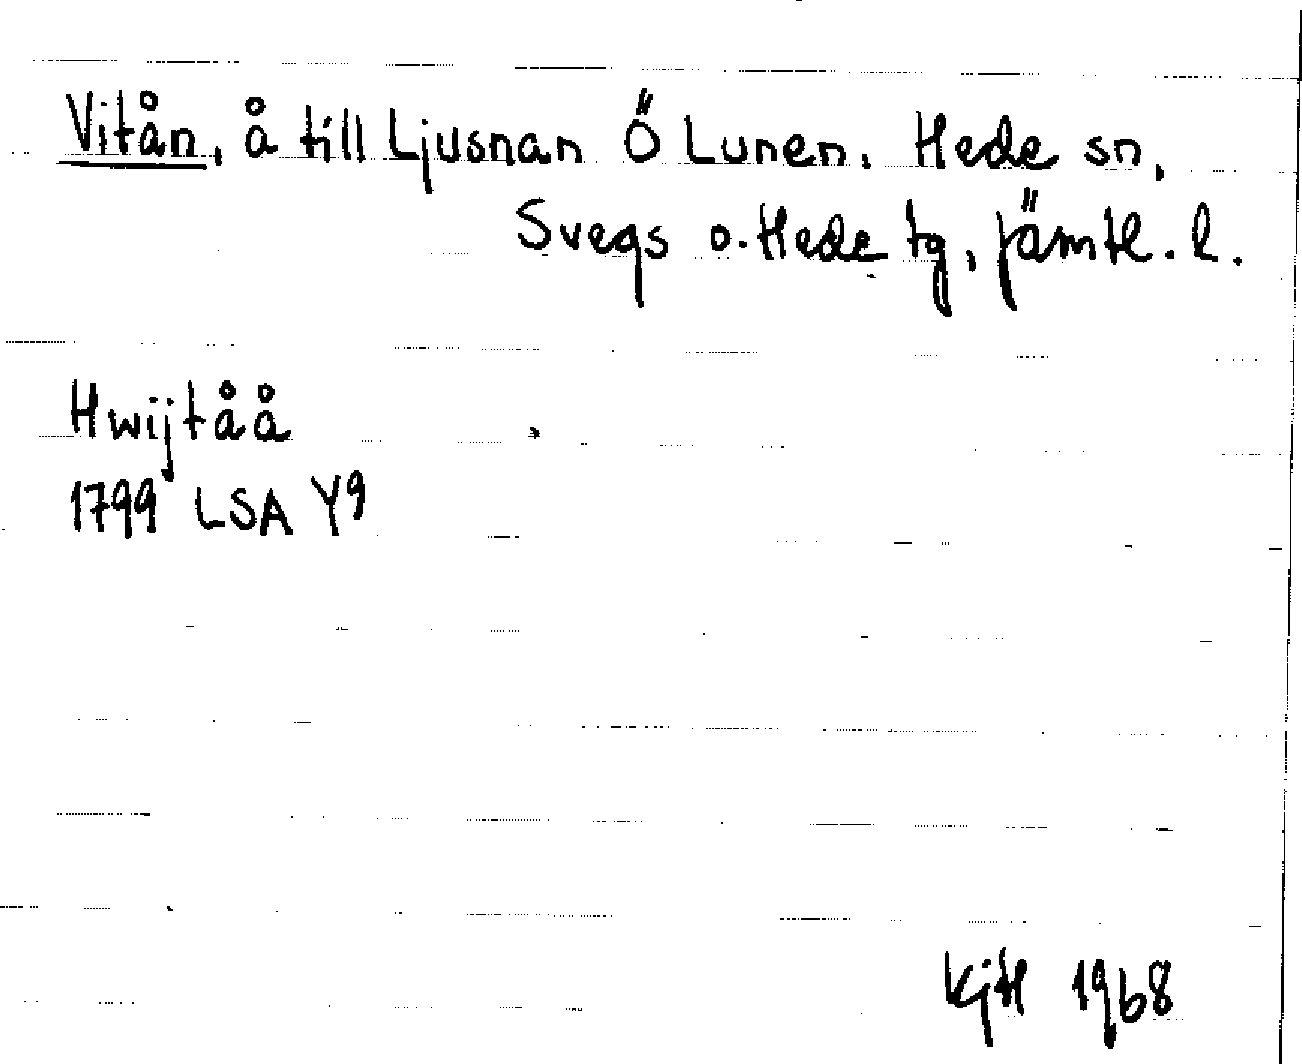 Vitån, å till Ljusnan Ö Lunen. Hede sn,
Svegs o. Hede tg, Jämtl. l.
Hwijtåå
1799 LSA Y9
KjH 1968